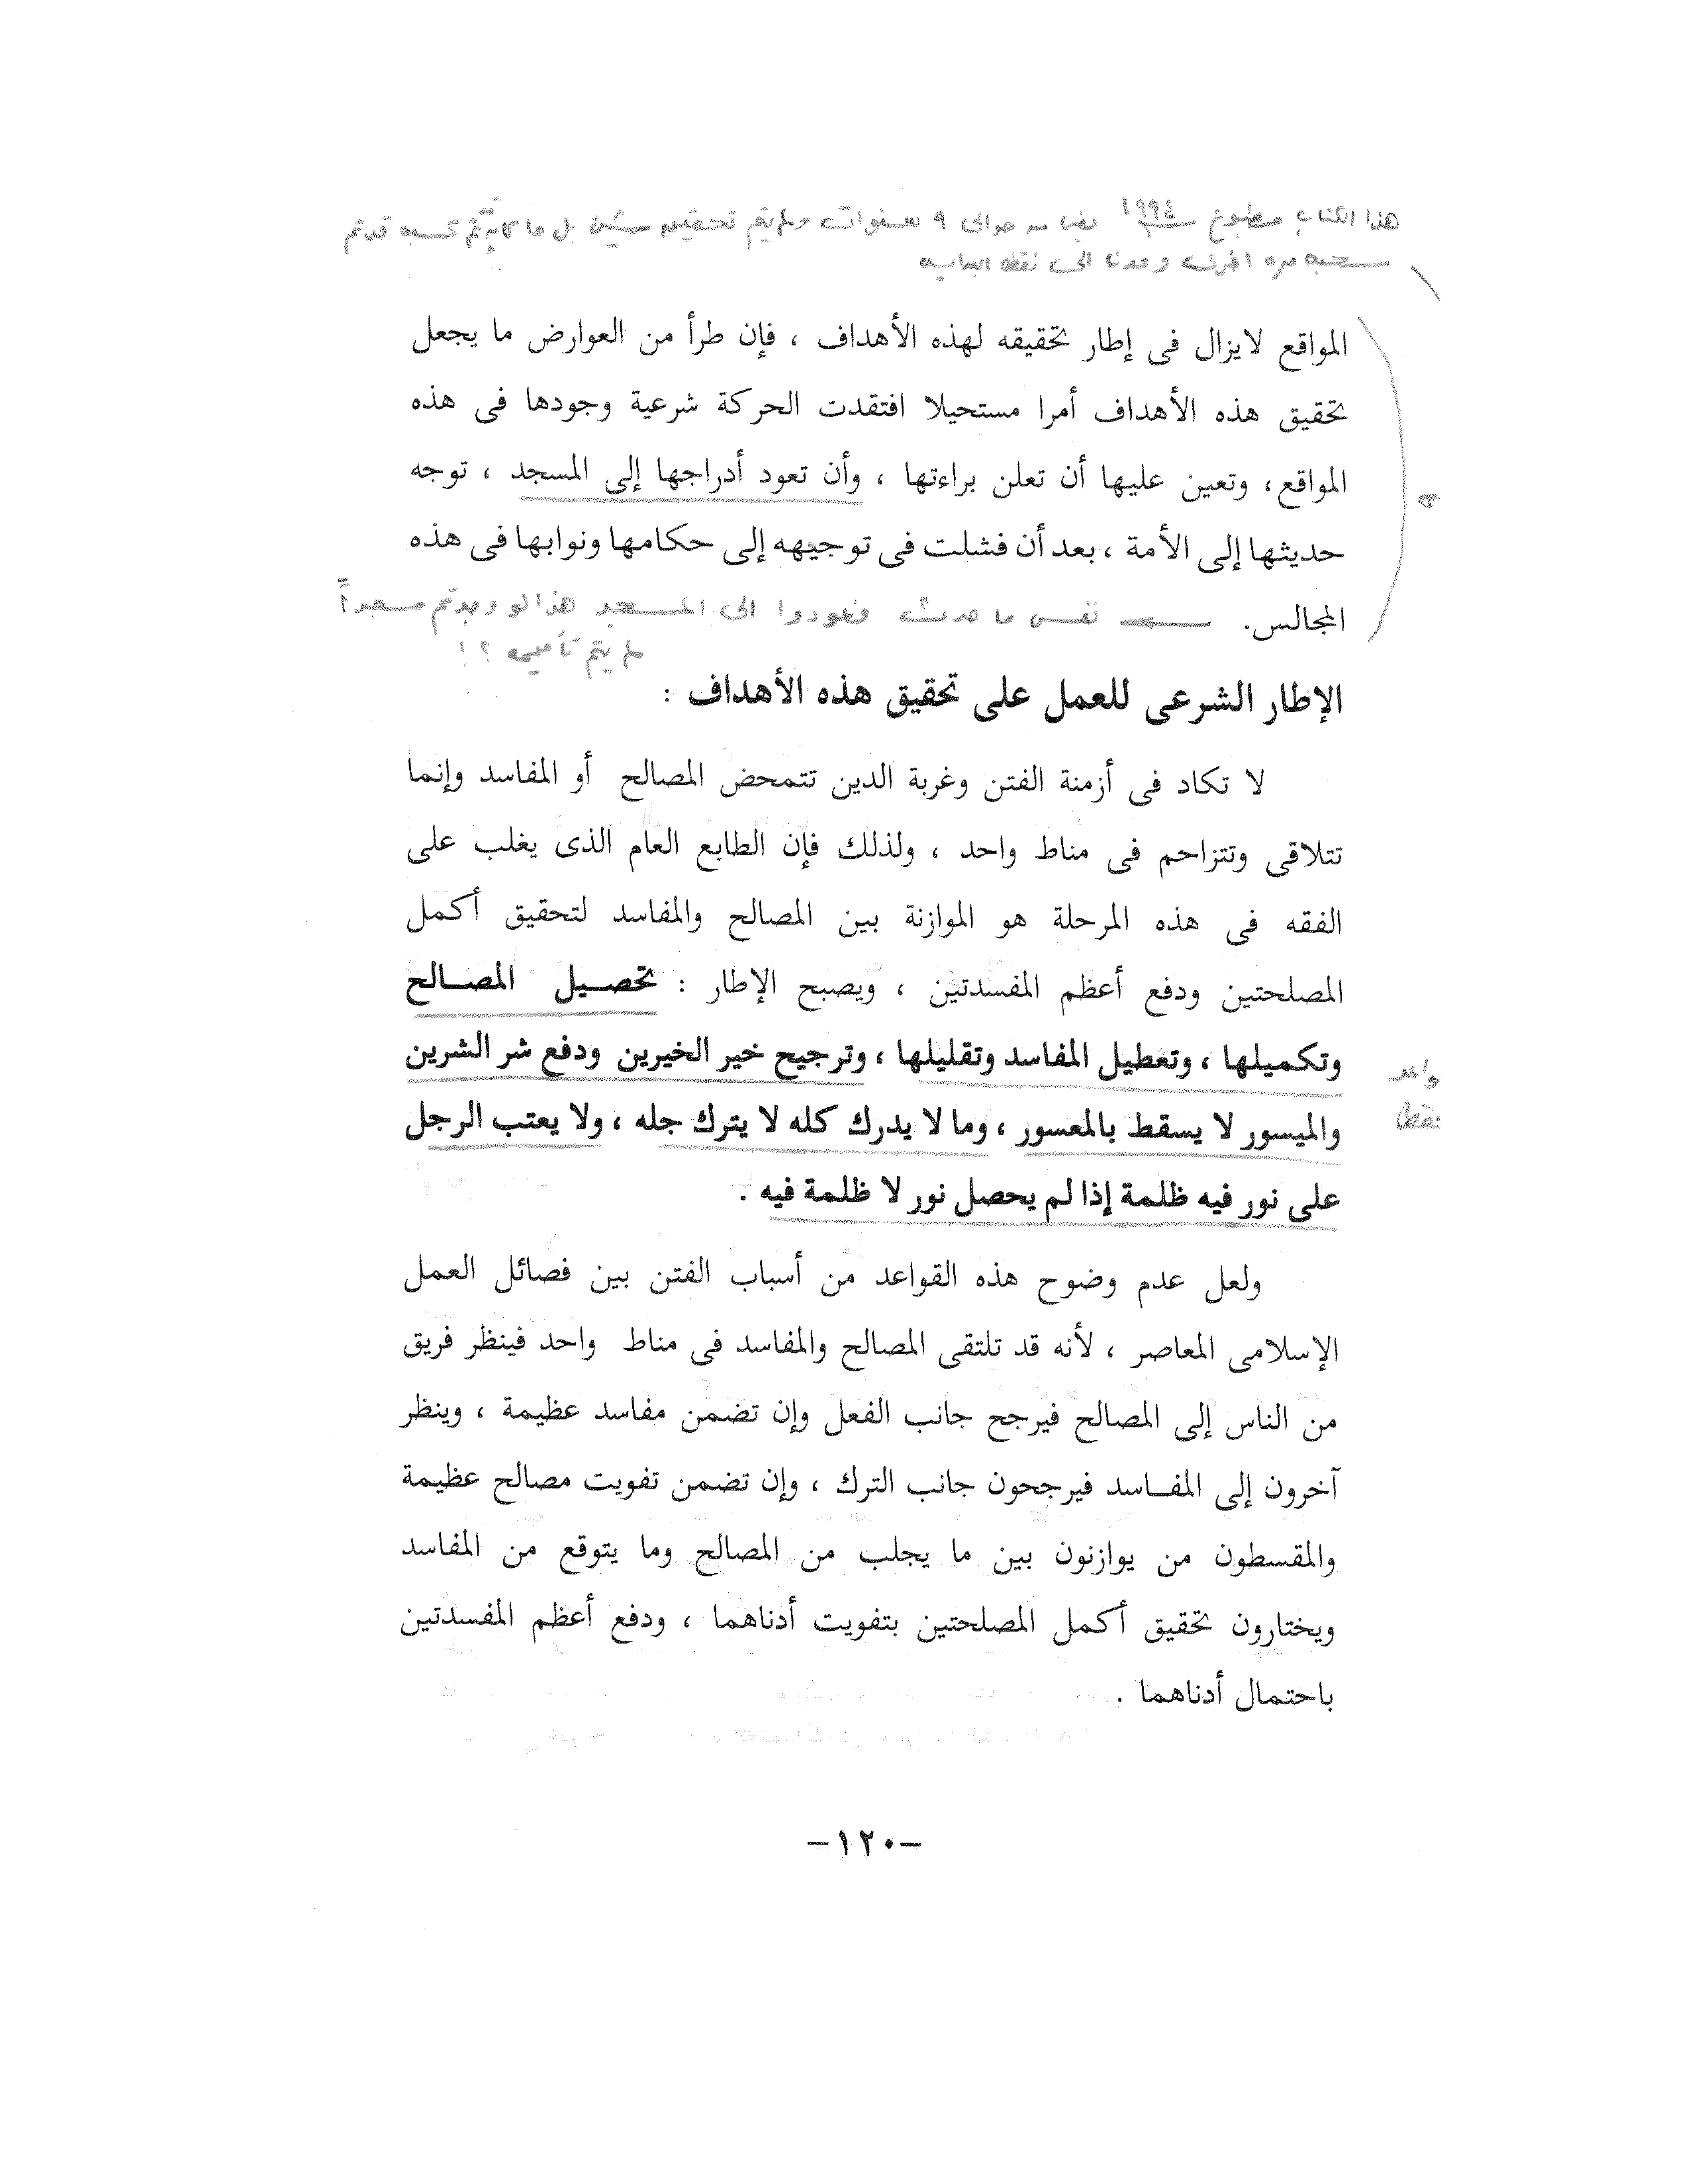 هذا الكتاب مطبوع ١٩٩٤ حوالى ٩ سنوات ولم يتم تحقيق شئ بل ما كان قد تم
سحبه مرة أخرى وعدنا الى نقطة البداية
المواقع لايزال فى إطار تحقيقه لهذه الأهداف ، فإن طرأ من العوارض ما يجعل
تحقيق هذه الأهداف أمرا مستحيلا افتقدت الحركة شرعية وجودها فى هذه
المواقع، وتعين عليها أن تعلن براءتها ، وأن تعود أدراجها إلى المسجد ، توجه
حديثها إلى الأمة ، بعد أن فشلت فى توجيهه إلى حكامها ونوابها فى هذه
المجالس. نفس ما حدث فعودوا الى المسجد هذا لو وجدتم مسجداً
لم يتم تأميمه ؟!
الإطار الشرعى للعمل على تحقيق هذه الأهداف :
لا تكاد فى أزمنة الفتن وغربة الدين تتمحض المصالح أو المفاسد وإنما
تتلاقى وتتزاحم فى مناط واحد ، ولذلك فإن الطابع العام الذى يغلب على
الفقه فى هذه المرحلة هو الموازنة بين المصالح والمفاسد لتحقيق أكمل
المصلحتين ودفع أعظم المفسدتين ، ويصبح الإطار : تحصيل المصالح
وتكميلها ، وتعطيل المفاسد وتقليلها ، وترجيح خير الخيرين ودفع شر الشرين
والميسور لا يسقط بالمعسور ، وما لا يدرك كله لا يترك جله ، ولا يعتب الرجل
على نور فيه ظلمة إذا لم يحصل نور لا ظلمة فيه .
ولعل عدم وضوح هذه القواعد من أسباب الفتن بين فصائل العمل
الإسلامى المعاصر ، لأنه قد تلتقى المصالح والمفاسد فى مناط واحد فينظر فريق
من الناس إلى المصالح فيرجح جانب الفعل وإن تضمن مفاسد عظيمة ، وينظر
آخرون إلى المفاسد فيرجحون جانب الترك ، وإن تضمن تفويت مصالح عظيمة
والمقسطون من يوازنون بين ما يجلب من المصالح وما يتوقع من المفاسد
ويختارون تحقيق أكمل المصلحتين بتفويت أدناهما ، ودفع أعظم المفسدتين
باحتمال أدناهما .
-١٢٠-